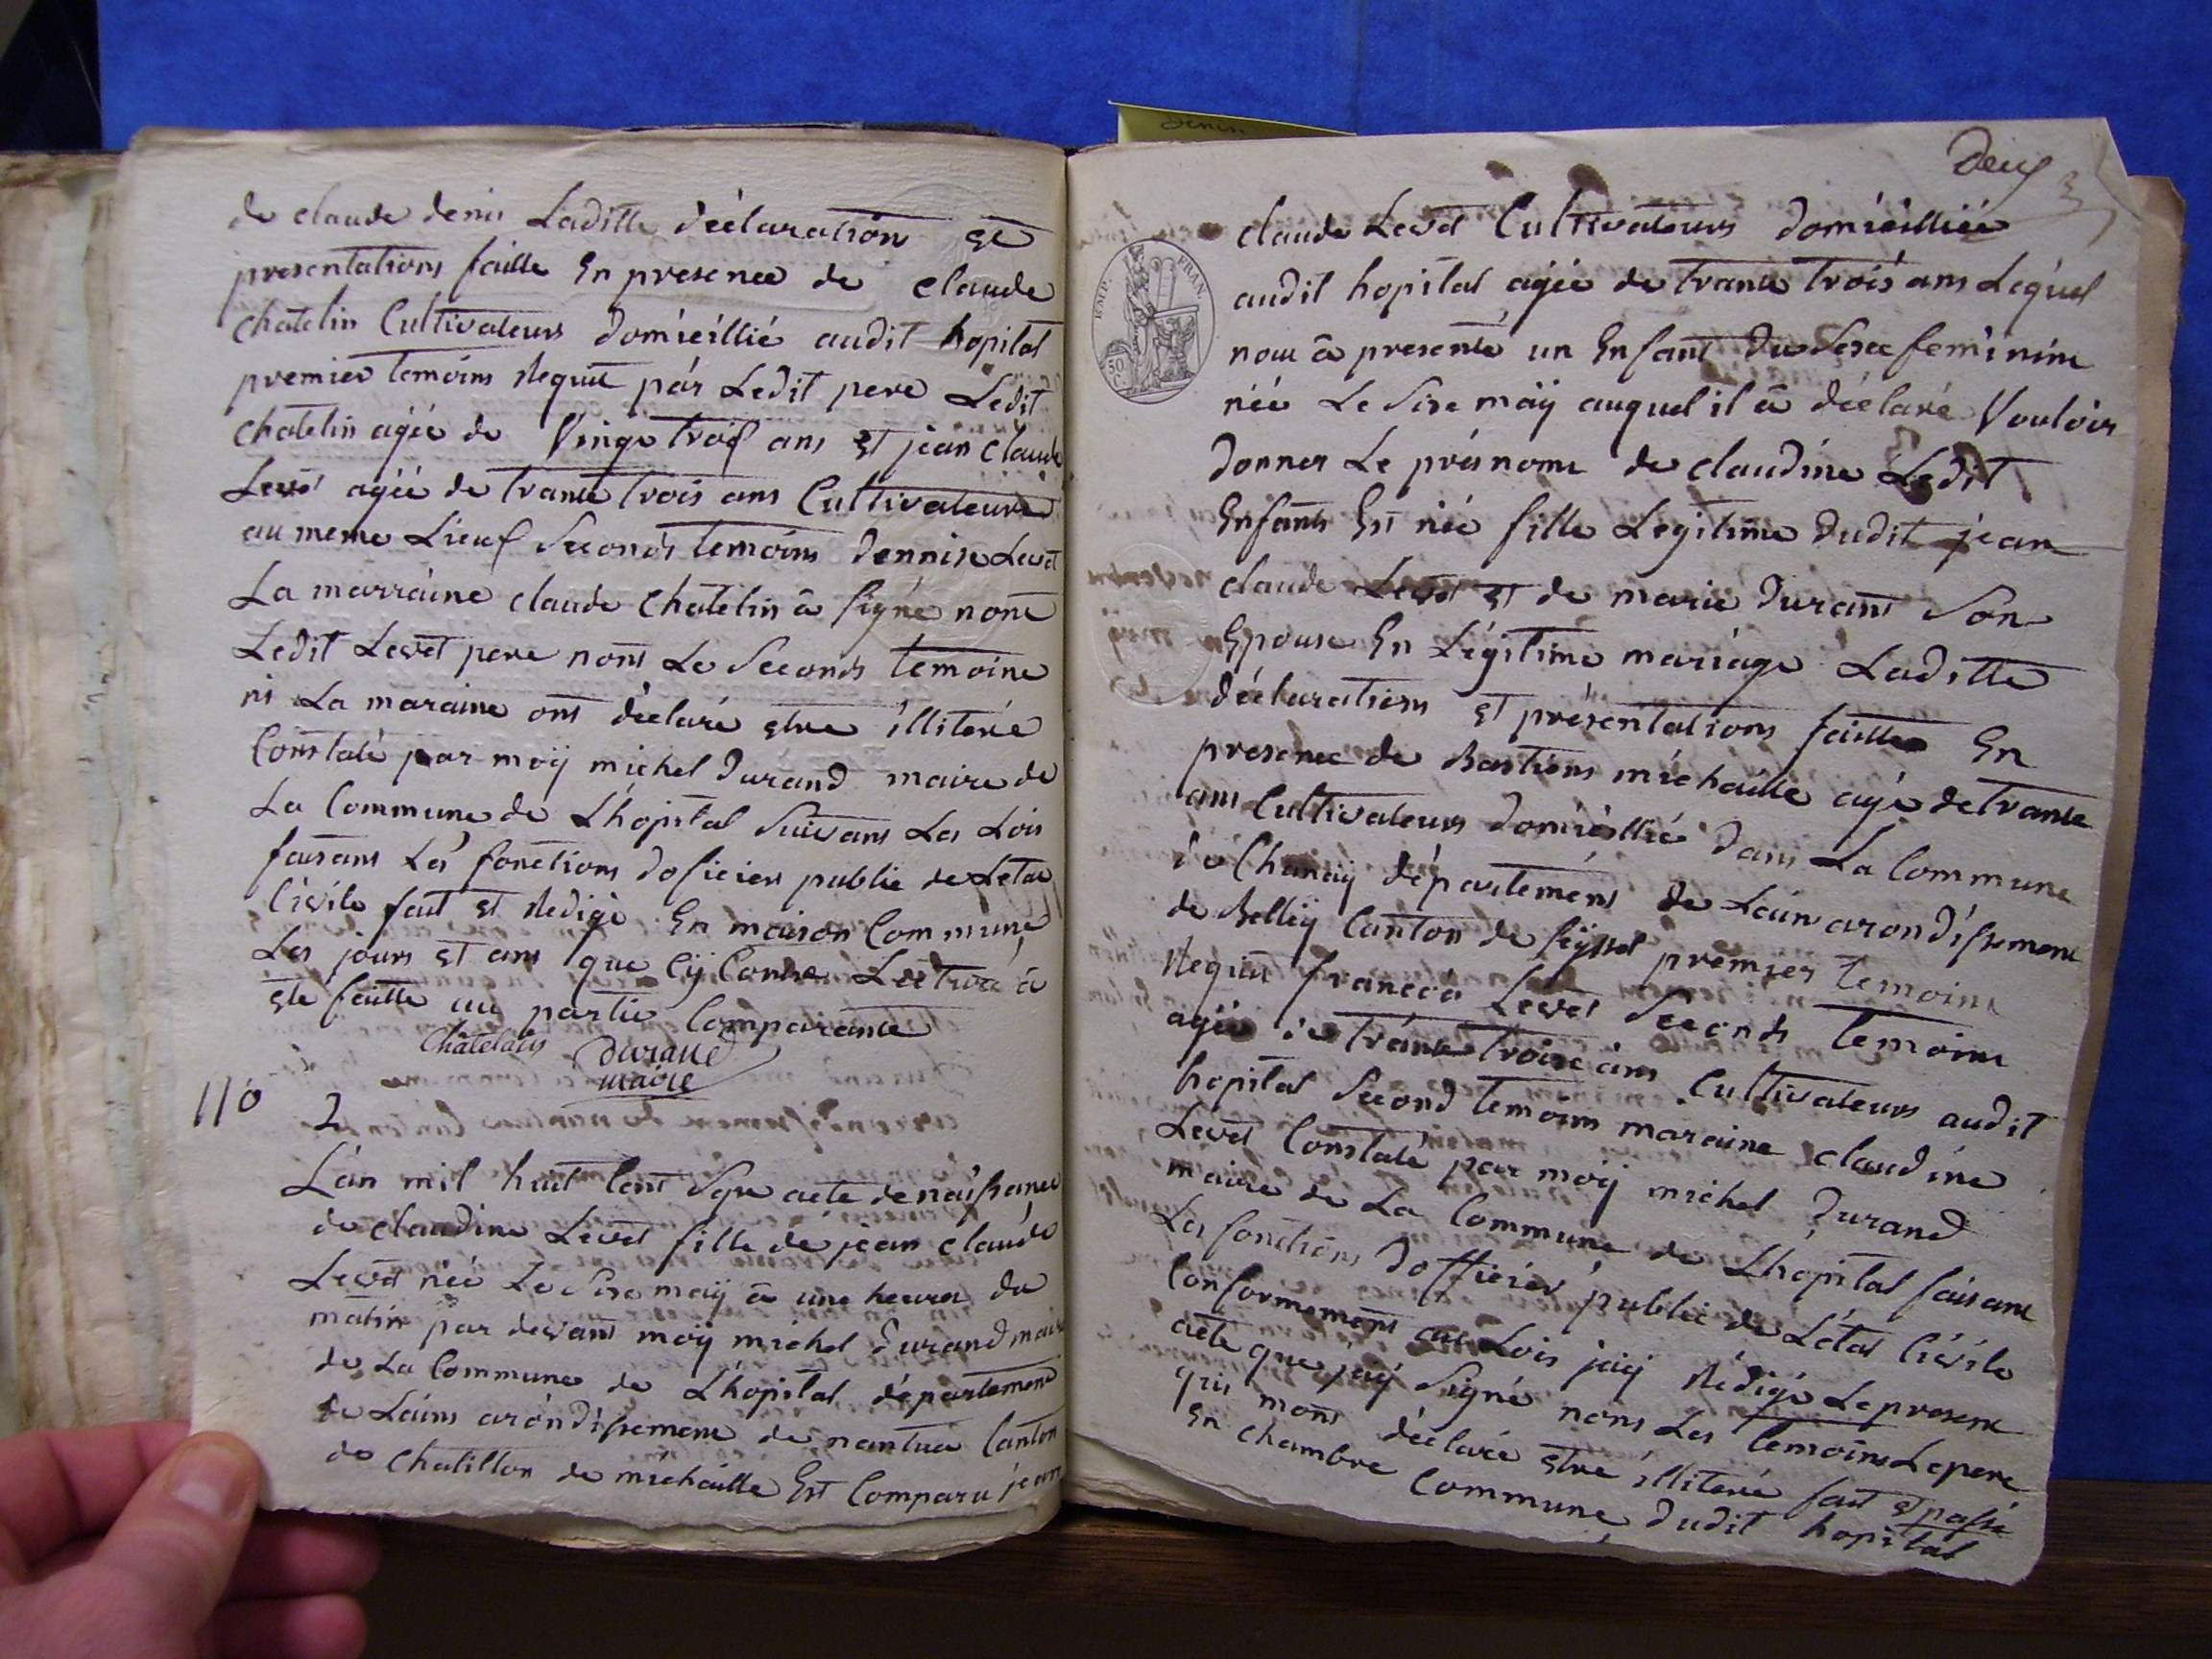 de claude denis Laditte déclaration et
presentations faitte En presence de claude
chatelin Cultivateurs domicillié audit hopital
premier temoins Requit par Ledit pere Ledit
chatelin agée de Vingt trois ans et jean claude
Levet agée de trante trois ans Cultivateurs
au meme Lieux Seconds temoins dennise Levet
La marraine claude chatelin a signe nont
Ledit Levet pere nont Le Seconds temoine
ni La maraine ont déclaré etre illiterée
Constaté par moÿ michel durand maire de
La Commune de Lhopital Suivans Les Lois
faisans Les fonctions doficier public de Letat
Civile fait et Redigé En maison Commune
Les jours et ans que cÿ Contre Lectura a
ete faitte au partie Comparante
Châtelain durand
maire
110
2
L'an mil huit Cent Sept acte de naissance
de claudine Levet fille de jean claude
Levet née Le Sise maÿ a une heures du
matin par devant moÿ michel durand maire
de La Commune de Lhopital département
de Lains arondissement de nantua Canton
de chatillon de michaille Est Comparu jean
deux
3
claude Levet Cultivateurs domicilliée
audit hopital agée de trante trois ans Lequel
nous a presenté un Enfant du Sexe feminine
née Le Sise maÿ auquel il a déclaré Vouloir
donner Le présnome de claudine Ledit
Enfants Est née fille Legitime dudit jean
claude Levet et de marie durant Son
Epouse En Légitime mariage Laditte
déclarations et présentations faitte En
presence de Bastiens michaille agé de trante
ans Cultivateurs domicillié dans La Commune
de Chanaÿ département de Lains arondissement
de Belleÿ Canton de seÿssel premier temoins
Requit francois Levet Seconds temoins
agée de trante troise ans Cultivateurs audit
hopital Second temoins maraine claudine
Levet Constaté par moÿ michel durand
maire de La Commune de Lhopital faisant
Les fonctions dofficier public de Létat Civile
Conformement aux Lois jaÿ Rédigé Le present
acte que jaÿ Signé nons Les temoins Le pere
qui mont déclarée etre illiteré fait et passé
En chambre Commune dudit hopital
EMP. FRAN.
50
C.